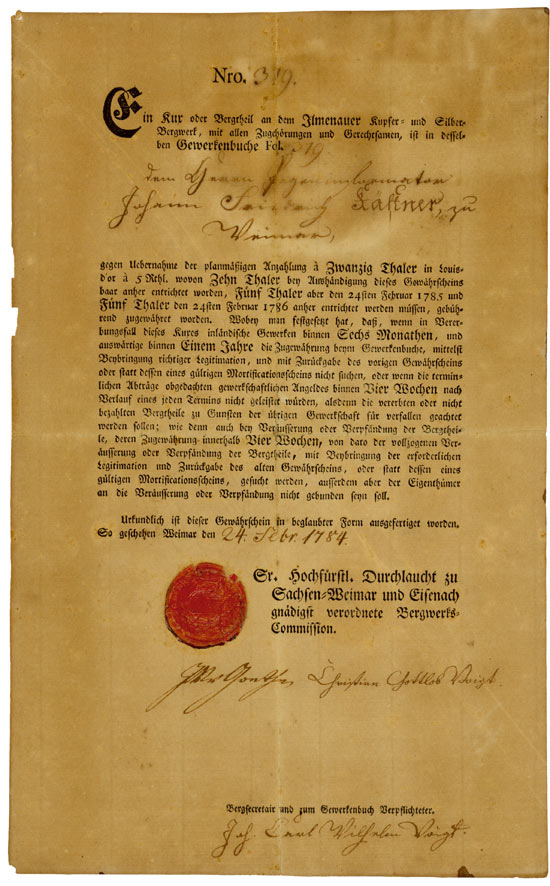 Nro. 319.
Ein Kux oder Bergtheil an dem Ilmenauer Kupfer- und Silber-
Bergwerk, mit allen Zugehörungen und Gerechtsamen, ist in dessel-
ben Gewerkenbuche Fol. 319
dem Herrn Pageninformator
Johann Friedrich Kästner, zu
Weimar,
gegen Uebernahme der planmäßigen Anzahlung à Zwanzig Thaler in Louis-
d'or à 5 Rthl. wovon Zehn Thaler bey Aushändigung dieses Gewährscheins
baar anher entrichtet worden, Fünf Thaler aber den 24sten Februar 1785 und
Fünf Thaler den 24sten Februar 1786 anher entrichtet werden müssen, gebüh-
rend zugewähret worden. Wobey man festgesetzt hat, daß, wenn in Verer-
bungsfall dieses Kuxes inländische Gewerken binnen Sechs Monathen, und
auswärtige binnen Einem Jahre die Zugewährung beym Gewerkenbuche, mittelst
Beybringung richtiger Legitimation, und mit Zurückgabe des vorigen Gewährscheins
oder statt dessen eines gültigen Mortificationsscheins nicht suchen, oder wenn die termin-
lichen Abträge obgedachten gewerkschaftlichen Angeldes binnen Vier Wochen nach
Verlauf eines jeden Termins nicht geleistet würden, alsdenn die vererbten oder nicht
bezahlten Bergtheile zu Gunsten der übrigen Gewerkschaft für verfallen geachtet
werden sollen; wie denn auch bey Veräusserung oder Verpfändung der Bergthei-
le, deren Zugewährung innerhalb Vier Wochen, von dato der vollzogenen Ver-
äusserung oder Verpfändung der Bergtheile, mit Beybringung der erforderlichen
Legitimation und Zurückgabe des alten Gewährscheins, oder statt dessen eines
gültigen Mortificationsscheins, gesucht werden, ausserdem aber der Eigenthümer
an die Veräusserung oder Verpfändung nicht gebunden seyn soll.
Urkundlich ist dieser Gewährschein in beglaubter Form ausgefertiget worden.
So geschehen Weimar den 24. Febr. 1784
Sr. Hochfürstl. Durchlaucht zu
Sachsen-Weimar und Eisenach
gnädigst verordnete Bergwerks-
Commission.
JWv Goethe Christian Gottlob Voigt.
Bergsecretair und zum Gewerkenbuch Verpflichteter.
Joh. Carl Wilhelm Voigt.